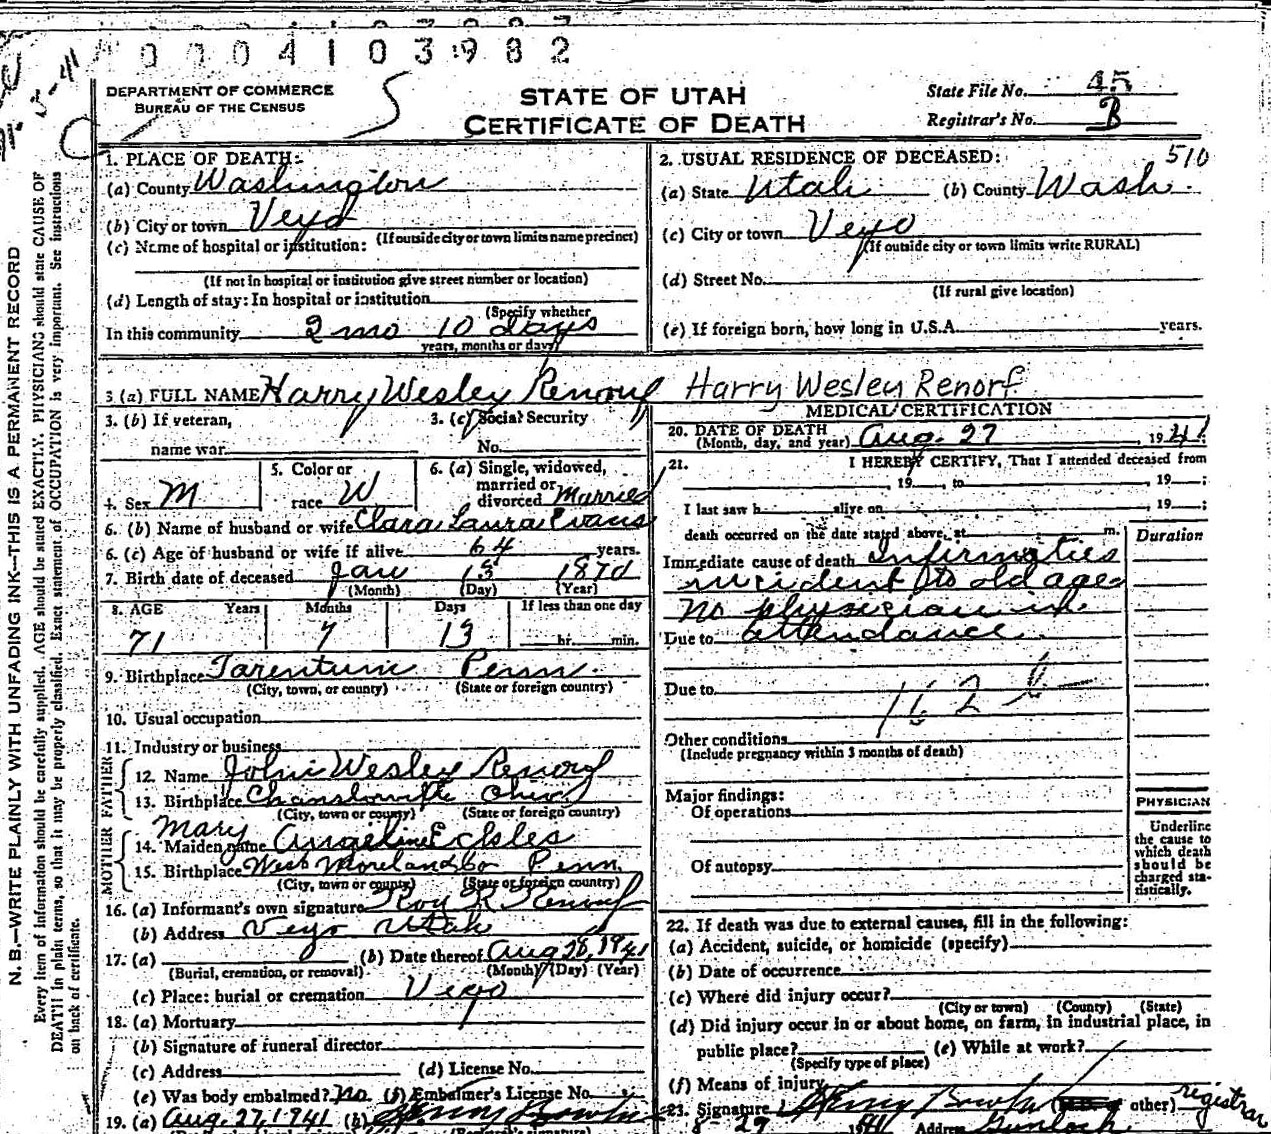 0 0 0 4 1 0 3 9 8 2
DEPARTMENT OF COMMERCE
BUREAU OF THE CENSUS
STATE OF UTAH
CERTIFICATE OF DEATH
State File No. 45
Registrar's No. B
510
N. B.—WRITE PLAINLY WITH UNFADING INK—THIS IS A PERMANENT RECORD
Every item of information should be carefully supplied. AGE should be stated EXACTLY. PHYSICIANS should state CAUSE OF
DEATH in plain terms, so that it may be properly classified. Exact statement of OCCUPATION is very important. See instructions
on back of certificate.
1. PLACE OF DEATH:
(a) County Washington
(b) City or town Veyo
(If outside city or town limits name precinct)
(c) Name of hospital or institution:
(If not in hospital or institution give street number or location)
(d) Length of stay: In hospital or institution
(Specify whether
In this community 2 mo 10 days
years, months or days)
2. USUAL RESIDENCE OF DECEASED:
(a) State Utah (b) County Wash.
(c) City or town Veyo
(If outside city or town limits write RURAL)
(d) Street No.
(If rural give location)
(e) If foreign born, how long in U.S.A. years.
3 (a) FULL NAME Harry Wesley Renorf Harry Wesley Renorf
3. (b) If veteran, 3. (c) Social Security
name war No.
4. Sex M 5. Color or race W 6. (a) Single, widowed, married or divorced Married
6. (b) Name of husband or wife Clara Laura Evans
6. (c) Age of husband or wife if alive 64 years.
7. Birth date of deceased Jan 1870
(Month) (Day) (Year)
8. AGE Years Months Days If less than one day
71 7 13 hr. min.
9. Birthplace Tarentum Penn.
(City, town, or county) (State or foreign country)
10. Usual occupation
11. Industry or business
FATHER
12. Name John Wesley Renorf
13. Birthplace Ohio
(City, town or county) (State or foreign country)
MOTHER
14. Maiden name Mary Angeline Eckles
15. Birthplace West Moreland Co Penn.
(City, town or county) (State or foreign country)
16. (a) Informant's own signature Roy R Renorf
(b) Address Veyo Utah
17. (a) (b) Date thereof Aug 28, 1941
(Burial, cremation, or removal) (Month) (Day) (Year)
(c) Place: burial or cremation Veyo
18. (a) Mortuary
(b) Signature of funeral director
(c) Address (d) License No.
(e) Was body embalmed? no (f) Embalmer's License No.
19. (a) Aug. 27, 1941 (b) Henry Bowler
MEDICAL CERTIFICATION
20. DATE OF DEATH
(Month, day, and year) Aug. 27, 1941
21. I HEREBY CERTIFY, That I attended deceased from
, 19 , to , 19 ;
I last saw h alive on , 19 ;
death occurred on the date stated above, at m.
Duration
Immediate cause of death Infirmaties
incident to old age
no physician in
Due to attendance
Due to
162 b
Other conditions
(Include pregnancy within 3 months of death)
Major findings:
Of operations
Of autopsy
PHYSICIAN
Underline
the cause to
which death
should be
charged sta-
tistically.
22. If death was due to external causes, fill in the following:
(a) Accident, suicide, or homicide (specify)
(b) Date of occurrence
(c) Where did injury occur?
(City or town) (County) (State)
(d) Did injury occur in or about home, on farm, in industrial place, in
public place? (e) While at work?
(Specify type of place)
(f) Means of injury
23. Signature Henry Bowler other) registrar
8-29 1941 Address Gunlock